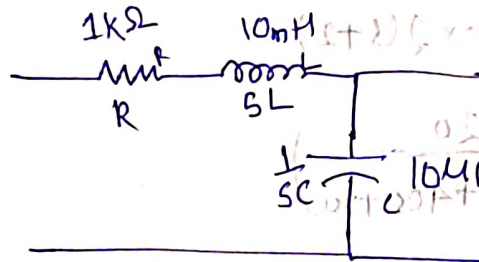 1KΩ 10mH
R SL
1/SC 10μ